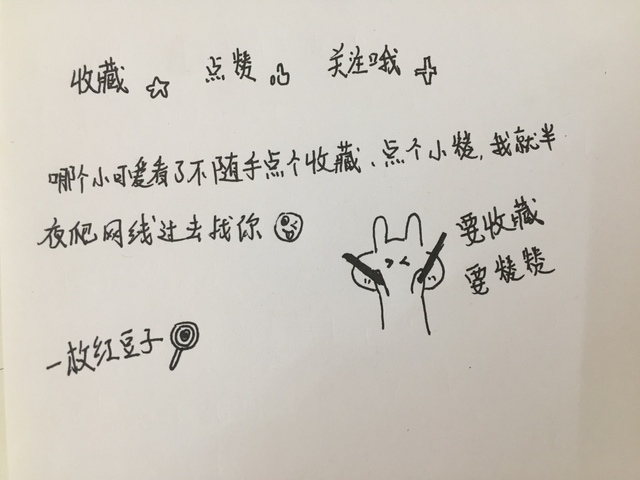 收藏 点赞 关注哦
哪个小可爱看了不随手点个收藏、点个小赞,我就半
夜爬网线过去找你
要收藏
要赞赞
一枚红豆子